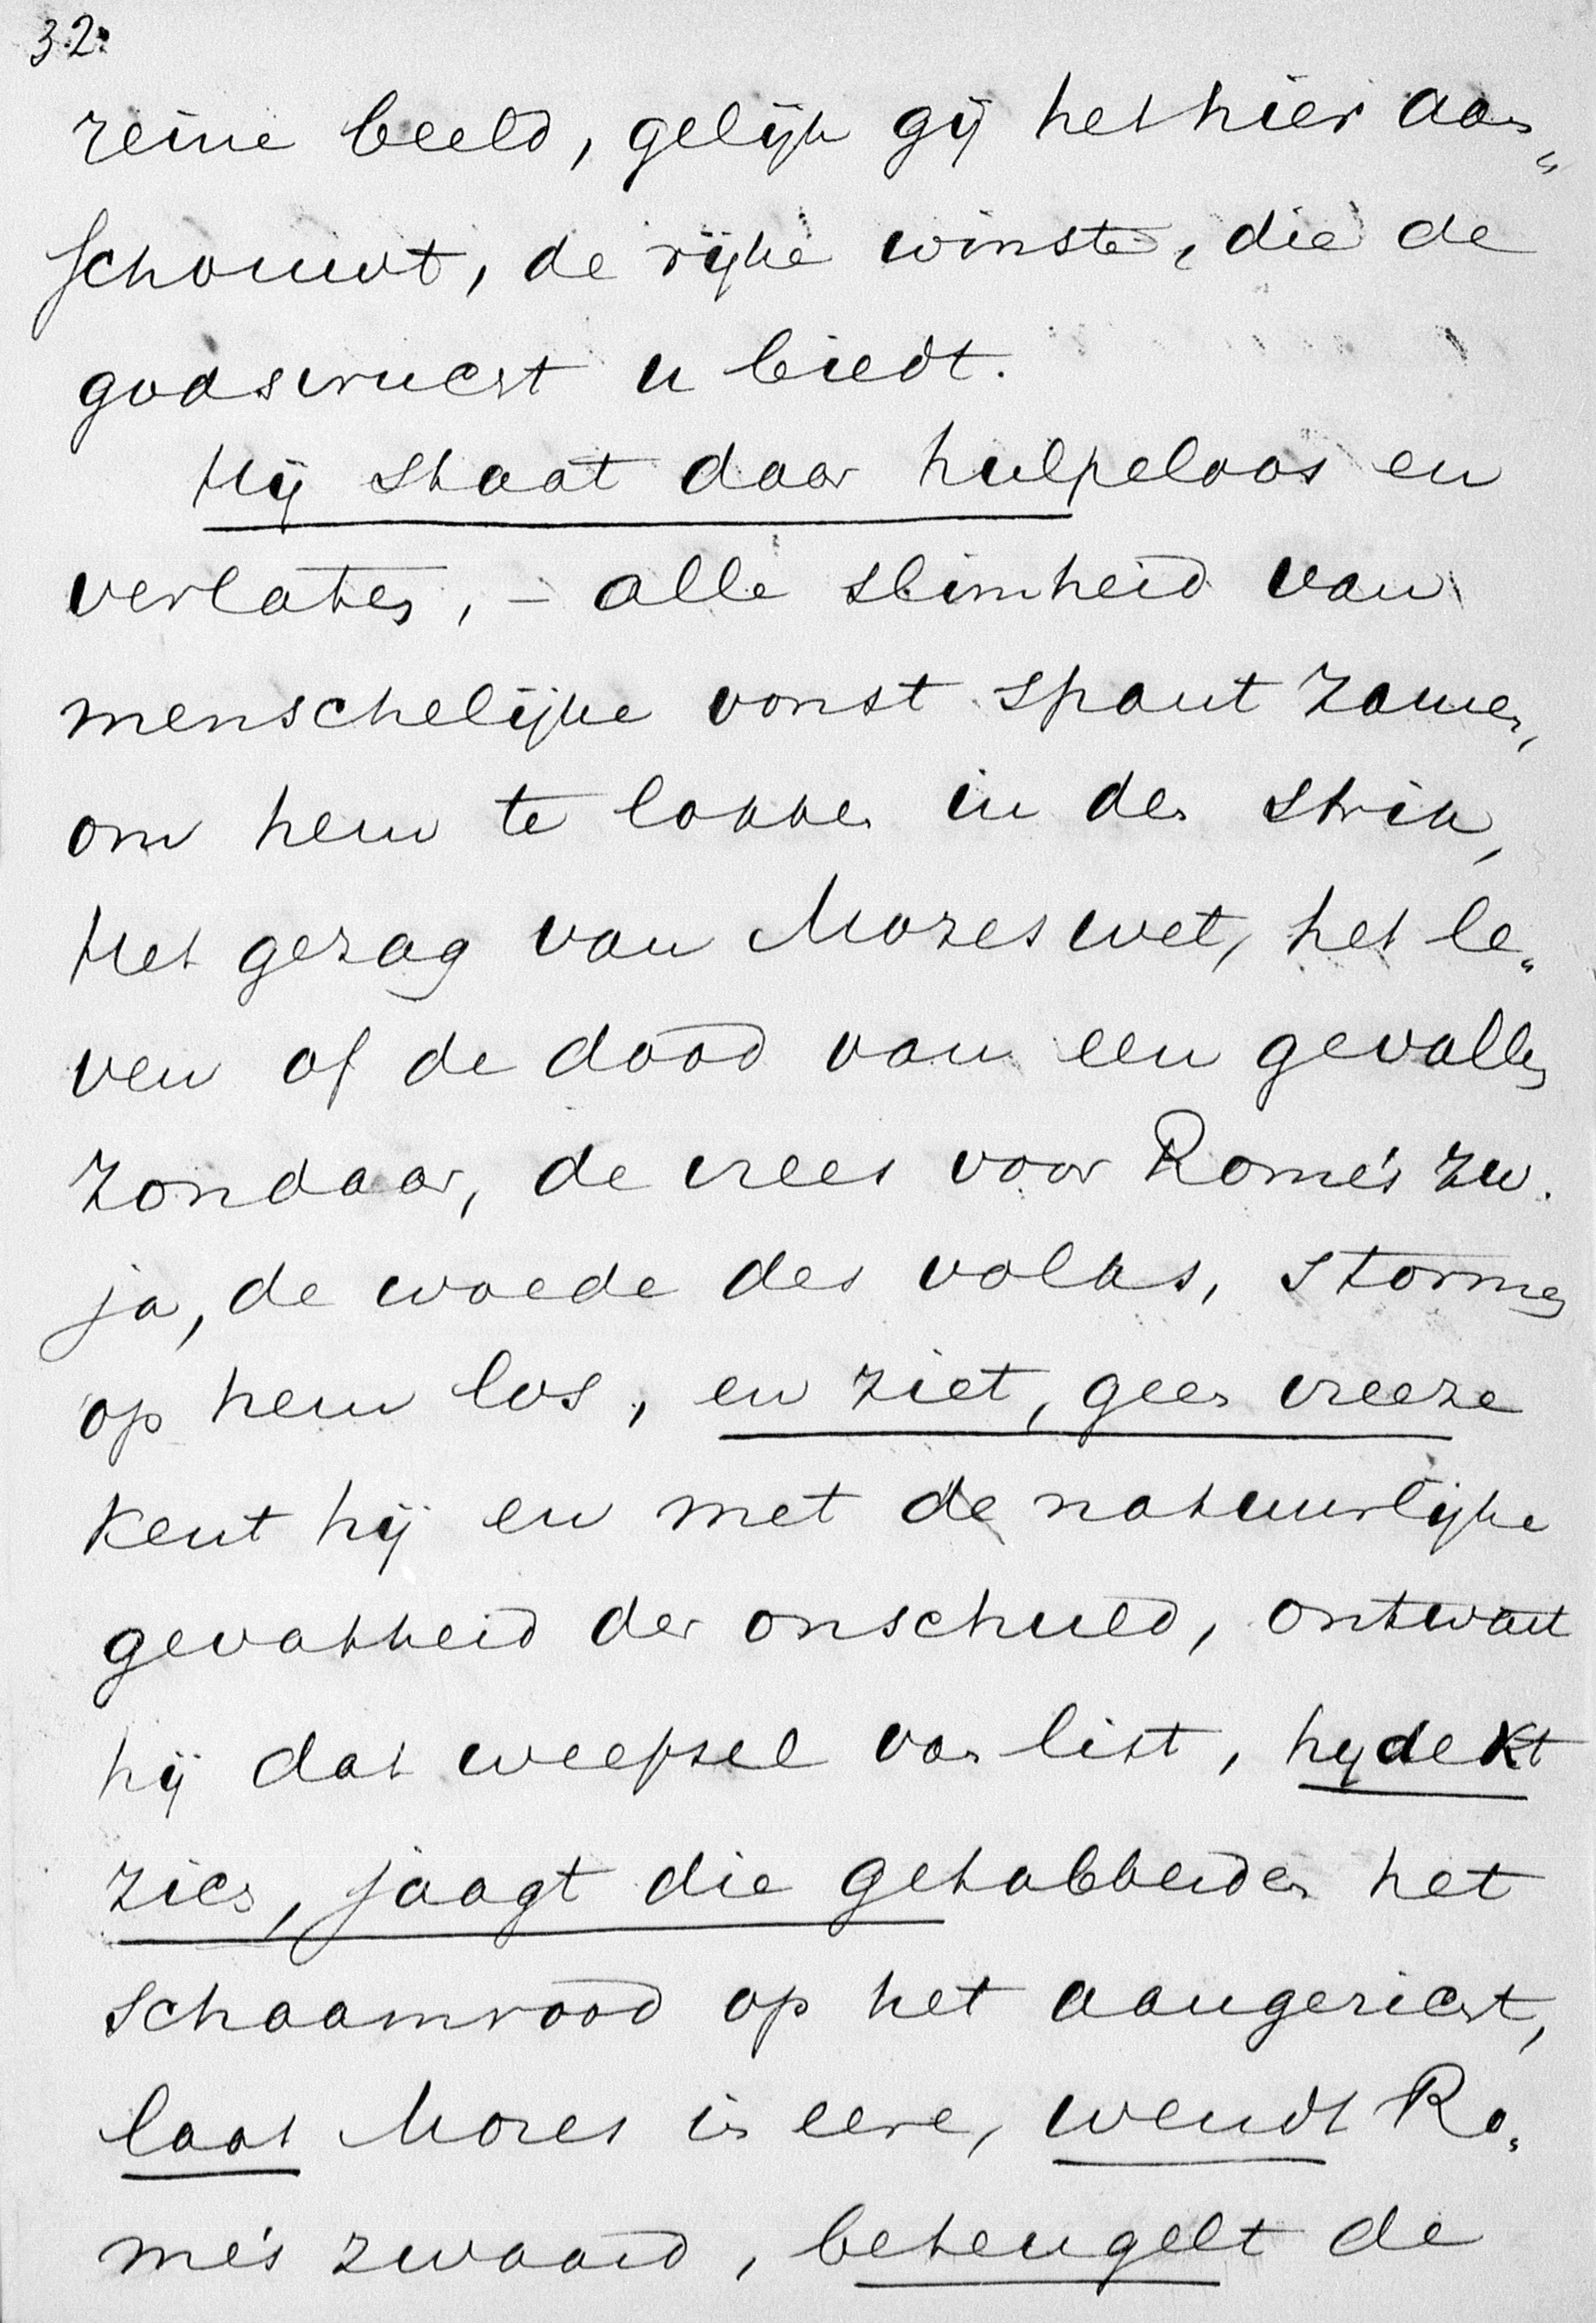 32.
reine beeld, gelijk gij het hier aan„
schouwt, de rijke winste, die de
godsvrucht u biedt.
Hij staat daar hulpeloos en
verlaten, – alle slimheid van
menschelijke vonst spant zamen,
om hem te lokken in den strik,
Het gezag van Mozes wet, het le„
ven of de dood van een gevallen
zondaar, de vrees voor Rome's zw.
ja, de woede des volks, stormen
op hem los, en ziet, geen vreeze
kent hij en met de natuurlijke
gevatheid der onschuld, ontwart
hij dat weefsel van list, hij dekt
zich, jaagt die getabberden het
schaamrood op het aangezicht,
laat Mozes in eere, wendt Ro„
me's zwaard, beteugelt de